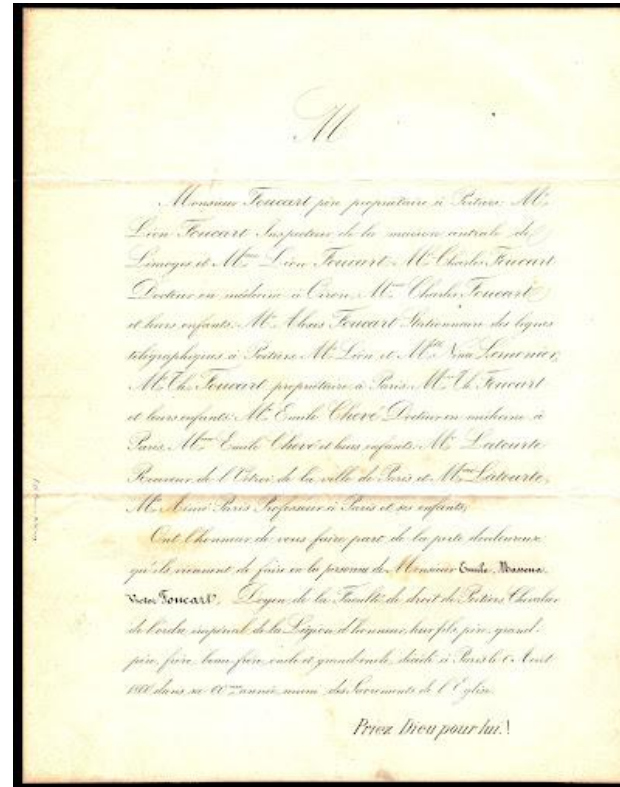 M
Monsieur Foucart père propriétaire à Poitiers, Mr.
Léon Foucart Inspecteur de la maison centrale de
Limoges et Mme Léon Foucart, Mr Charles Foucart
Docteur en médecine à Oiron, Mme Charles Foucart
et leurs enfants, Mr Alexis Foucart Stationnaire des lignes
télégraphiques à Poitiers, Mr Léon et Mlle Nina Lemonier,
Mr Th. Foucart propriétaire à Paris, Mme Th. Foucart
et leurs enfants, Mr Emile Chevé Docteur en médecine à
Paris, Mme Emile Chevé et leurs enfants, Mr Latourte
Receveur de l'Octroi de la ville de Paris et Mme Latourte,
Mr Aimé Paris Professeur à Paris et ses enfants,
Ont l'honneur de vous faire part de la perte douloureuse
qu'ils viennent de faire en la personne de Monsieur Emile, Massena
Victor Foucart, Doyen de la Faculté de droit de Poitiers, Chevalier
de l'ordre impérial de la Légion d'honneur, leur fils, père, grand-
père, frère, beau-frère, oncle et grand-oncle, décédé à Paris le 6 Août
1860 dans sa 60ème année, muni des Sacrements de l'Eglise.
Priez Dieu pour lui.!